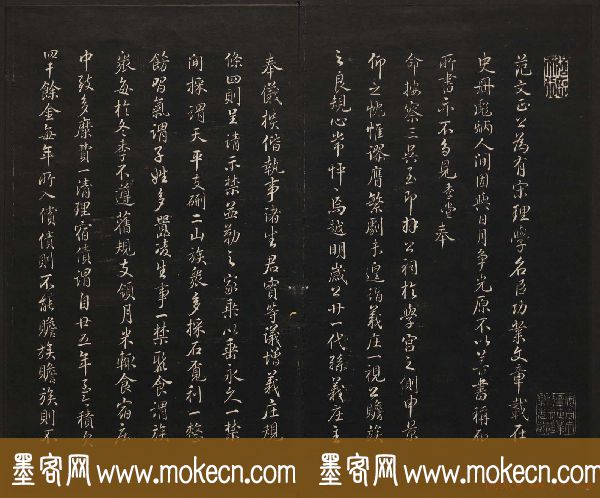 范文正公為有宋理學名臣功業文章載在
史冊彪炳人間固與日月爭光原不以善書稱而
所書亦不多見忝堂奉
命按察三吳至即拜公祠於學宮之側申景
仰之忱惟膺繁劇未遑詣義庄一視公贍族
之良規心常忡焉越明歲公廿一代孫義庄主
奉儀揆偕執事諸生君實等議增義庄規
條四則呈請示禁並勒之家乘以垂永久一禁
開採謂天平支硎二山族衆多採石覓利一整
飭習氣謂子姓多囂凌生事一禁聚食謂族
衆每於冬季不遵舊規支領月米輒食宿庄
中致多糜費一清理宿債謂自廿五年至積欠
四千餘金每年所入償債則不能贍族贍族則不
墨客网 www.mokecn.com 墨客网 www.mokecn.com